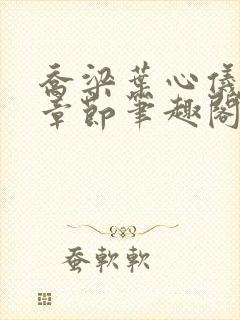 喬梁葉心儀
章節筆趣閣
蚕軟軟